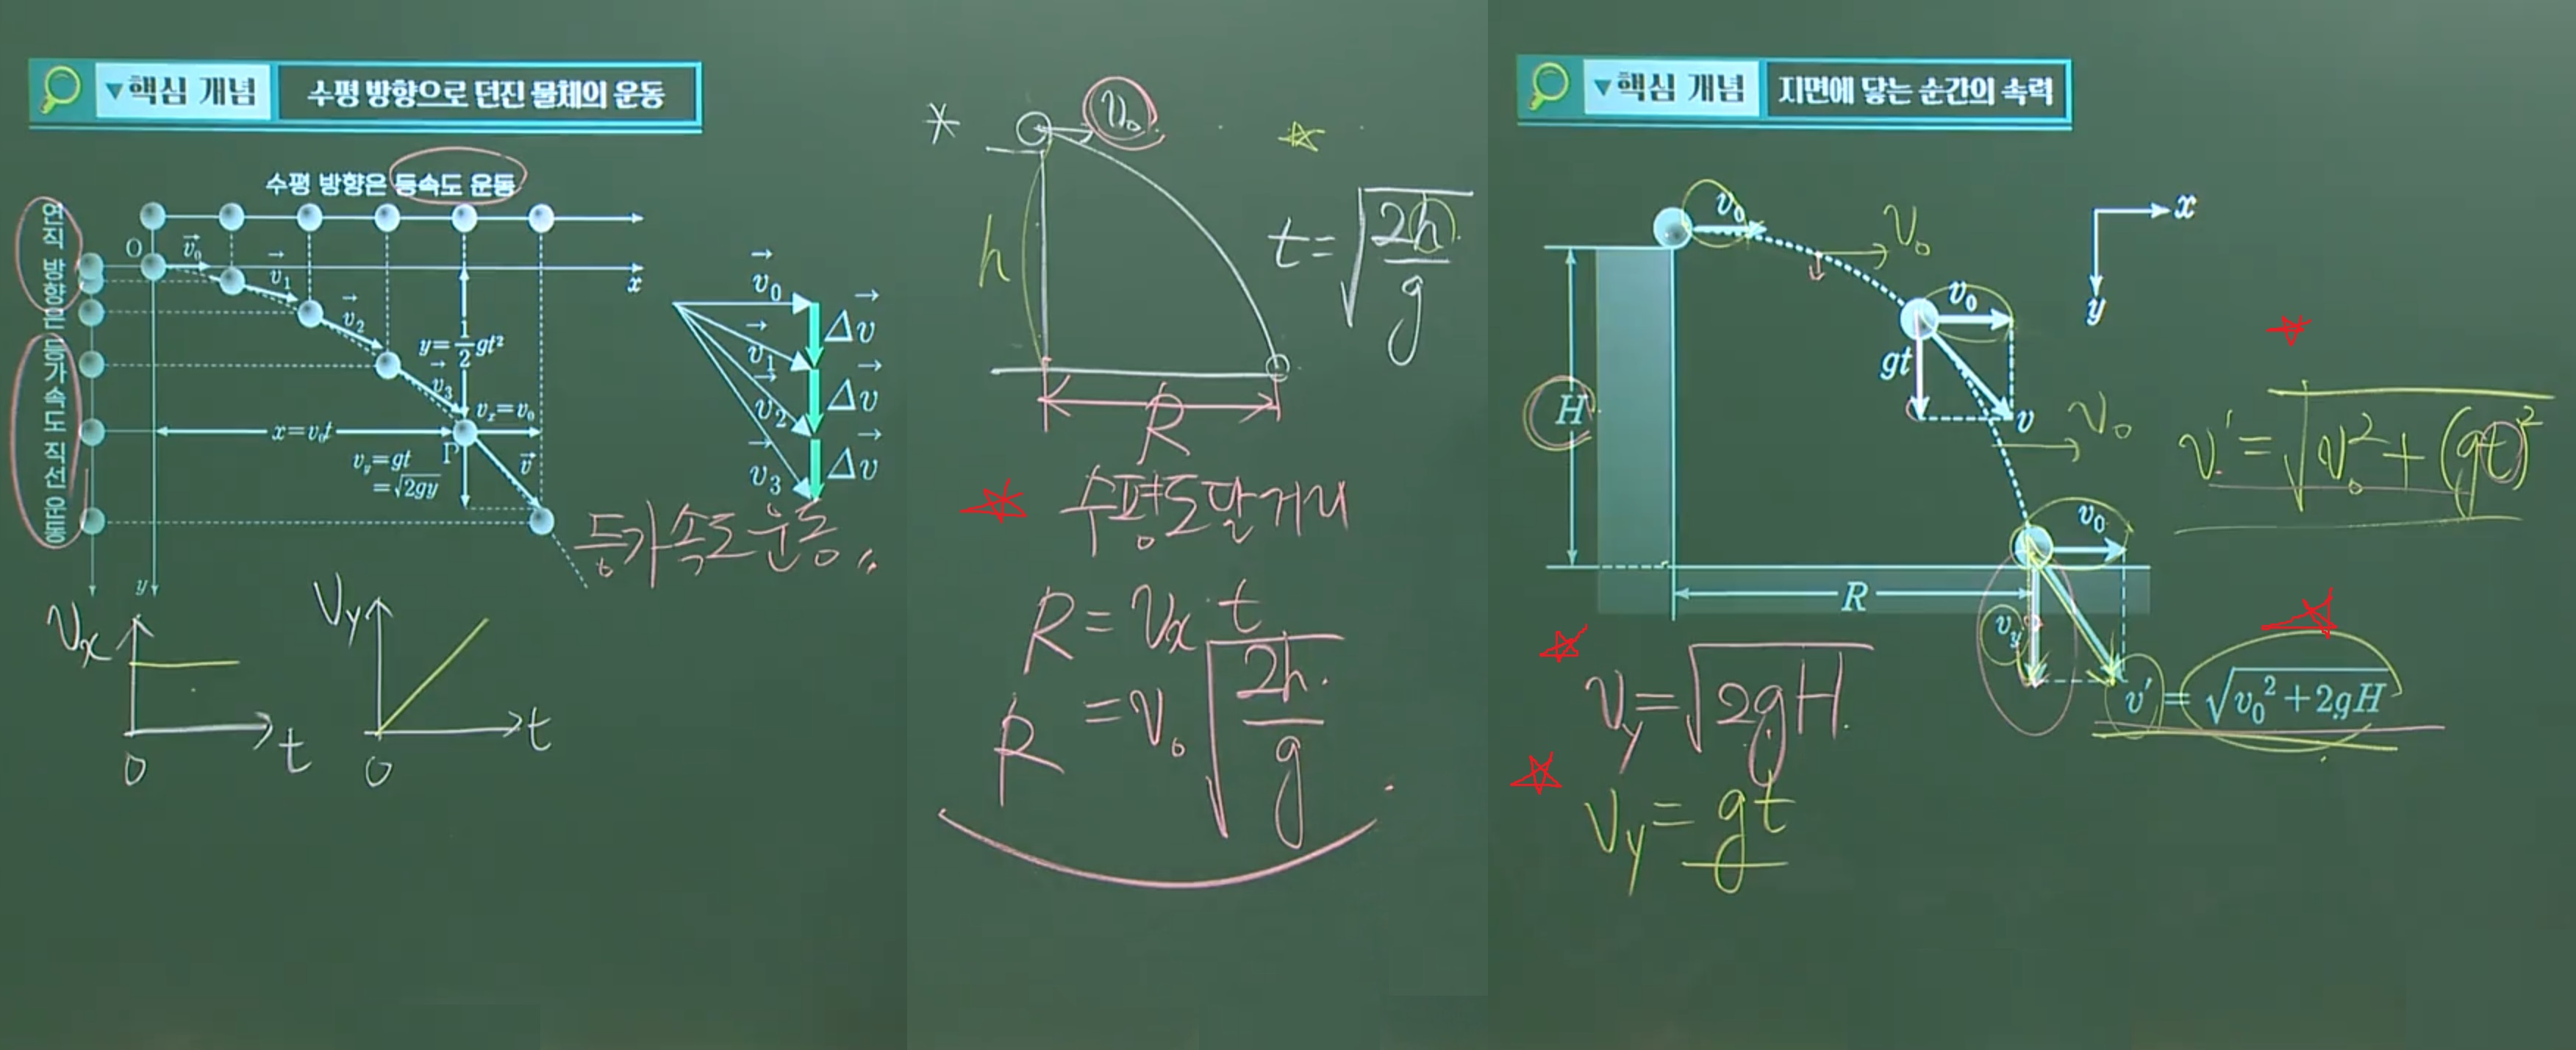 ▼핵심 개념 수평 방향으로 던진 물체의 운동
수평 방향은 등속도 운동
연직 방향은 등가속도 직선 운동
O
v₀
v₁
x
v₂
y=½gt²
v₃
vₓ=v₀
x=v₀t
P
v_y=gt
=√2gy
v
y
v₀
Δv
v₁
Δv
v₂
Δv
v₃
등가속도운동
Vx
0
t
Vy
0
t
* v₀
h
t=√(2h/g)
R
수평도달거리
R=Vx t
R =v₀√(2h/g)
▼핵심 개념 지면에 닿는 순간의 속력
v₀
V₀
x
y
v₀
gt
v
H
V₀
v'=√(v₀²+(gt)²)
v₀
R
v_y
v'=√(v₀²+2gH)
Vy=√2gH
Vy=gt